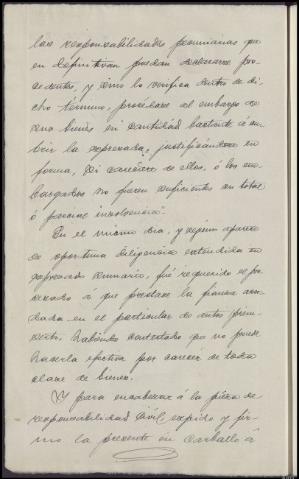 las responsabilidades pecuniarias que
en definitiva puedan declararse pro-
cedentes, y como lo verifica dentro de di-
cho término, procédase al embargo de
sus bienes en cantidad bastante á cu-
brir la expresada, justificándose en
forma, si careciere de ellos, ó los em-
bargados no fueren suficientes su total
ó parcial insolvencia.
En el mismo dia, y según aparece
de oportuna diligencia extendida en
expresado sumario, fué requerido el pro-
cesado á que prestase la fianza acor-
dada en el particular de autos prein-
serto, habiendo contestado que no puede
hacerla efectiva por carecer de toda
clase de bienes.
Y para encabezar á la pieza de
responsabilidad civil expido y fir-
mo la presente en Carballo á